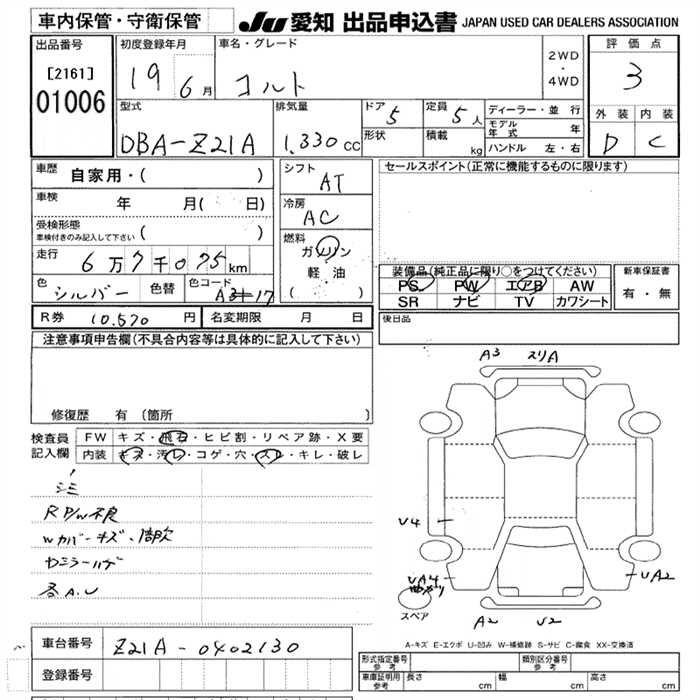 車内保管・守衛保管 JU 愛知 出品申込書 JAPAN USED CAR DEALERS ASSOCIATION
出品番号 [2161] 01006
初度登録年月 19 6月
車名・グレード コルト
2WD・4WD
評価点 3
外装 D 内装 C
型式 DBA-Z21A
排気量 1,330 CC
ドア 5
形状
定員 5人
積載 kg
ディーラー・並行
モデル年式 年
ハンドル 左・右
車歴 自家用・( )
車検 年 月( 日)
受検形態 車検付きのみ記入して下さい ( )
走行 6万7千075km
色 シルバー 色替 色コード A3#17
シフト AT
冷房 AC
燃料 ガソリン 軽油 ( )
セールスポイント(正常に機能するものに限ります)
装備品(純正品に限り○をつけてください)
PS PW エアB AW
SR ナビ TV カワシート
新車保証書 有・無
R券 10,570 円 名変期限 月 日
後日品
注意事項申告欄(不具合内容等は具体的に記入して下さい)
修復歴 有(箇所 )
検査員記入欄
FW キズ・飛石・ヒビ割・リペア跡・X要
内装 キズ・汚レ・コゲ・穴・スレ・キレ・破レ
R P/W不良
Wカバーキズ、

各A.U
A3 スリA
U4
UA4
UA2
スペア
A2 U2
A-キズ E-エクボ U-凹み W-補修跡 S-サビ C-腐食 XX-交換済
車台番号 Z21A-0402130
登録番号
形式指定番号 参考 類別区分番号 参考
車庫証明用 参考 長さ cm 幅 cm 高さ cm